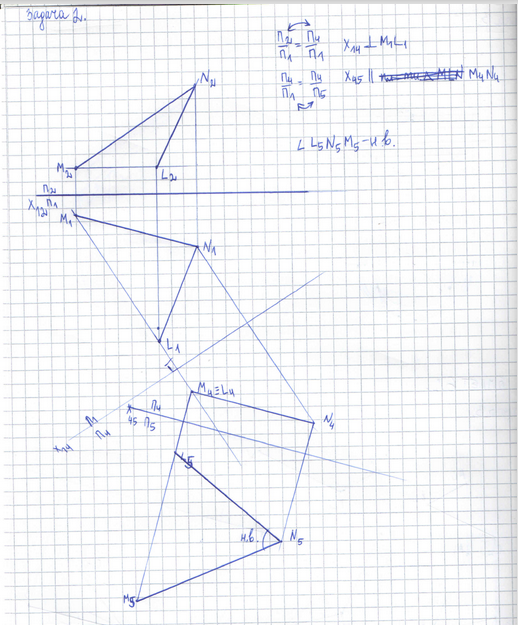 Задача 2.
П2/П1 = П4/П1 X14 ⊥ M1L1
П4/П1 = П4/П5 X45 || M4N4
∠ L5N5M5 - н.в.
N2
M2
L2
П2
X12 П1
M1
N1
L1
M4≡L4
П1
П4
X14
X П4
45 П5
N4
L5
н.в.
N5
M5